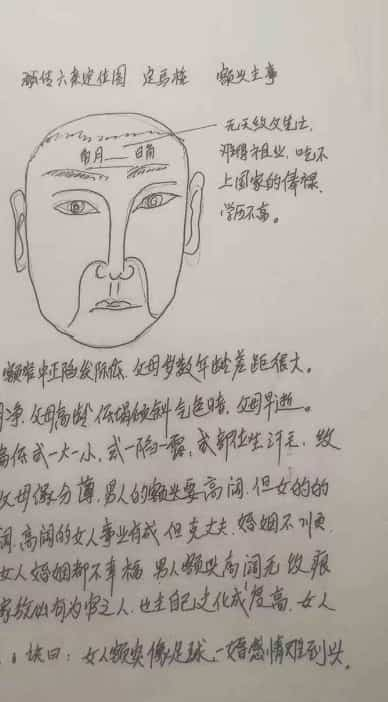 师传六亲定位图 定焉桩 额头主事
无天纹又生土,
难得祖业,吃不
上国家的俸禄,
学历不高。
月角 日角
额难中正陷发际低,父母岁数年龄差距很大。
净,父母高龄 低塌倾斜气色暗,父母早逝。
高低或一大一小,或一陷一露,或部位生汗毛,纹
父母缘分薄,男人的额头要高阔,但女的的
阔,高阔的女人事业有成,但克丈夫,婚姻不顺,
女人婚姻都不幸福 男人额头高阔无纹痕
家教出有为官之人,也主自己文化成程度高,女人
诀曰:女人额头像足球,一婚感情难到头。